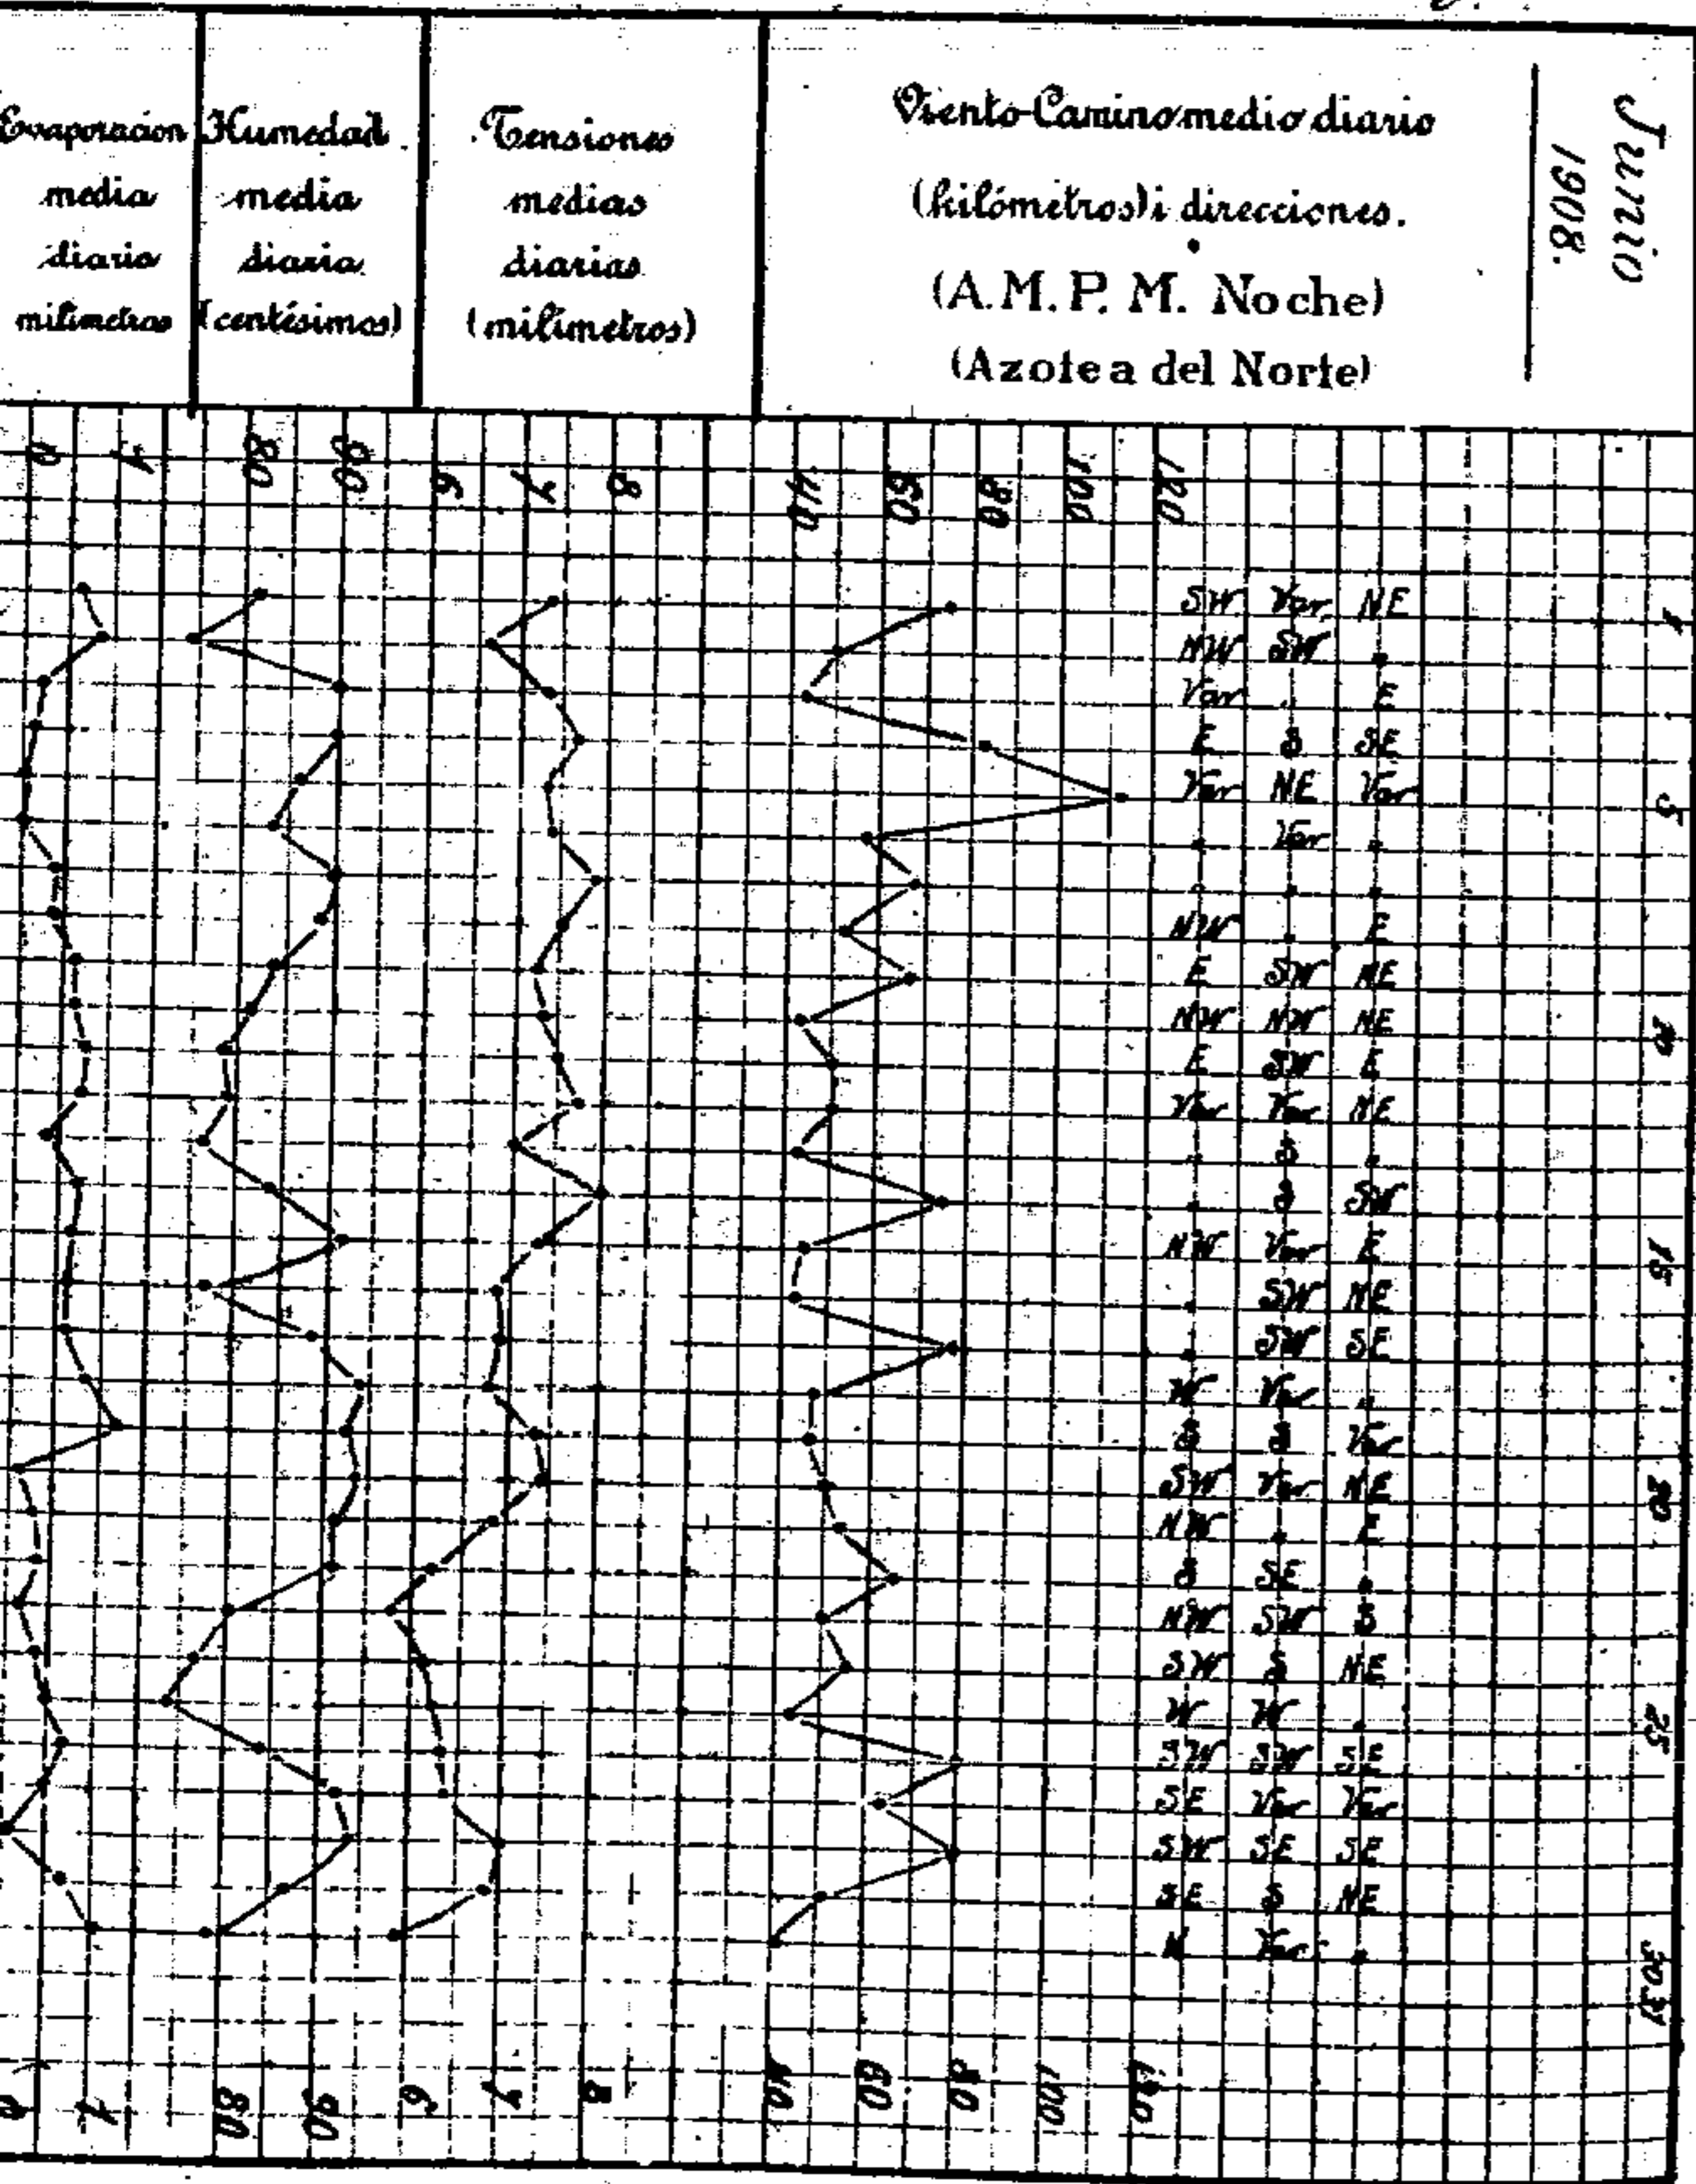 Evaporacion
media
diaria
milímetros
Humedad
media
diaria
(centésimos)
Tensiones
medias
diarias
(milímetros)
Viento-Camino medio diario
(kilómetros) i direcciones.
(A.M. P. M. Noche)
(Azotea del Norte)
Junio
1908.
0 1 80 90 6 7 8 40 60 80 100 120
SW Var NE 1
NW SW "
Var " E
E S SE
Var NE Var 5
" Var "
" " "
NW " E
E SW NE
NW NW NE 10
E SW E
Var Var NE
" S "
" S SW
NW Var E 15
" SW NE
" SW SE
W Var "
S S Var
SW Var NE 20
NW " E
S SE "
NW SW S
SW S NE
W W " 25
SW SW SE
SE Var Var
SW SE SE
SE S NE
N Var " 30 31
0 1 80 90 6 7 8 40 60 80 100 120